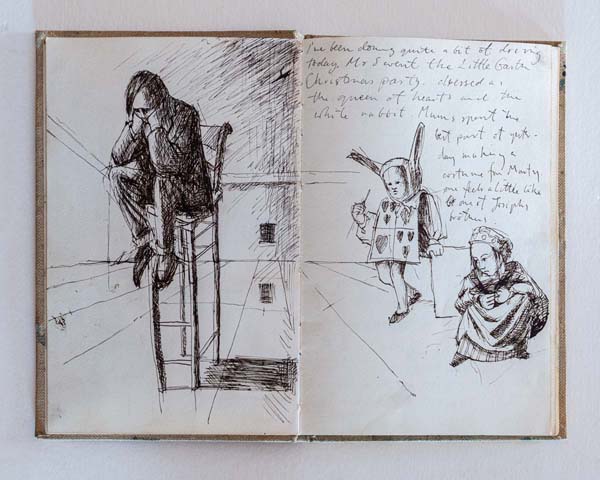 I've been doing quite a bit of driving
today. M & S went the Little Garden
Christmas party. dressed as
the queen of hearts and the
white rabbit. Mums spent the
best part of yester-
day making a
costume for Marty
one feels a little like
one of Josephs
brothers.